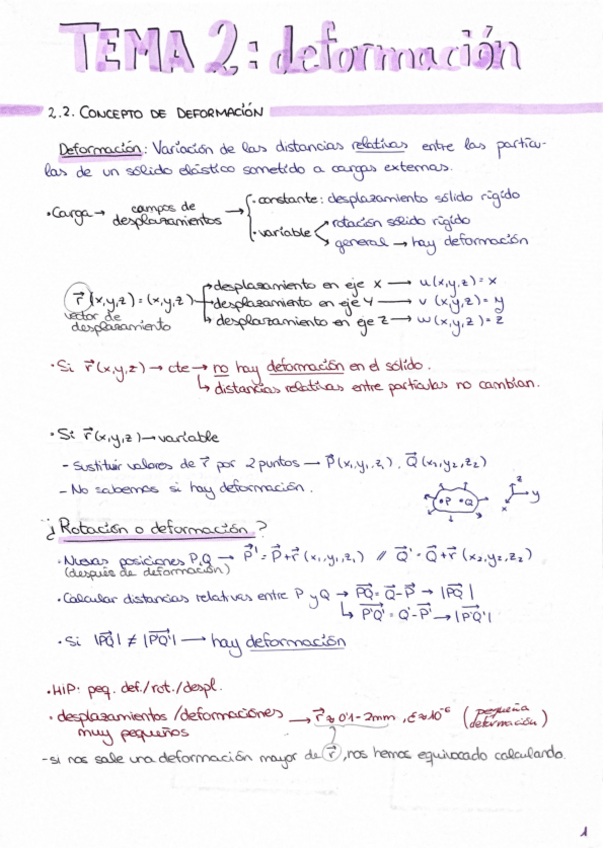 TEMA 2: deformación
2.2. CONCEPTO DE DEFORMACIÓN
Deformación: Variación de las distancias relativas entre las partícu-
las de un sólido elástico sometido a cargas externas.
• Carga → campos de desplazamientos → { • constante: desplazamiento sólido rígido
• variable → rotación sólido rígido
→ general → hay deformación
r⃗ (x,y,z) = (x,y,z) → desplazamiento en eje X → u(x,y,z) = x
→ desplazamiento en eje Y → v (x,y,z) = y
→ desplazamiento en eje Z → w(x,y,z) = z
vector de
desplazamiento
• Si r⃗ (x,y,z) → cte → no hay deformación en el sólido.
↳ distancias relativas entre partículas no cambian.
• Si r⃗ (x,y,z) → variable
- Sustituir valores de r⃗ por 2 puntos → P⃗(x₁,y₁,z₁), Q⃗(x₂,y₂,z₂)
- No sabemos si hay deformación.
• P • Q
z
y
x
¿Rotación o deformación?
• Nuevas posiciones P,Q → P⃗' = P⃗+r⃗ (x₁,y₁,z₁) // Q⃗' = Q⃗+r⃗ (x₂,y₂,z₂)
(después de deformación)
• Calcular distancias relativas entre P y Q → PQ⃗ = Q⃗-P⃗ → |PQ⃗|
↳ P'Q'⃗ = Q'-P'⃗ → |P'Q'⃗|
• Si |PQ⃗| ≠ |P'Q'⃗| → hay deformación
• HIP: peq. def./rot./despl.
• desplazamientos/deformaciones muy pequeños → r⃗ ≈ 0'1-2mm, ε≈10⁻⁶ (pequeña deformación)
- si nos sale una deformación mayor de r⃗, nos hemos equivocado calculando.
1